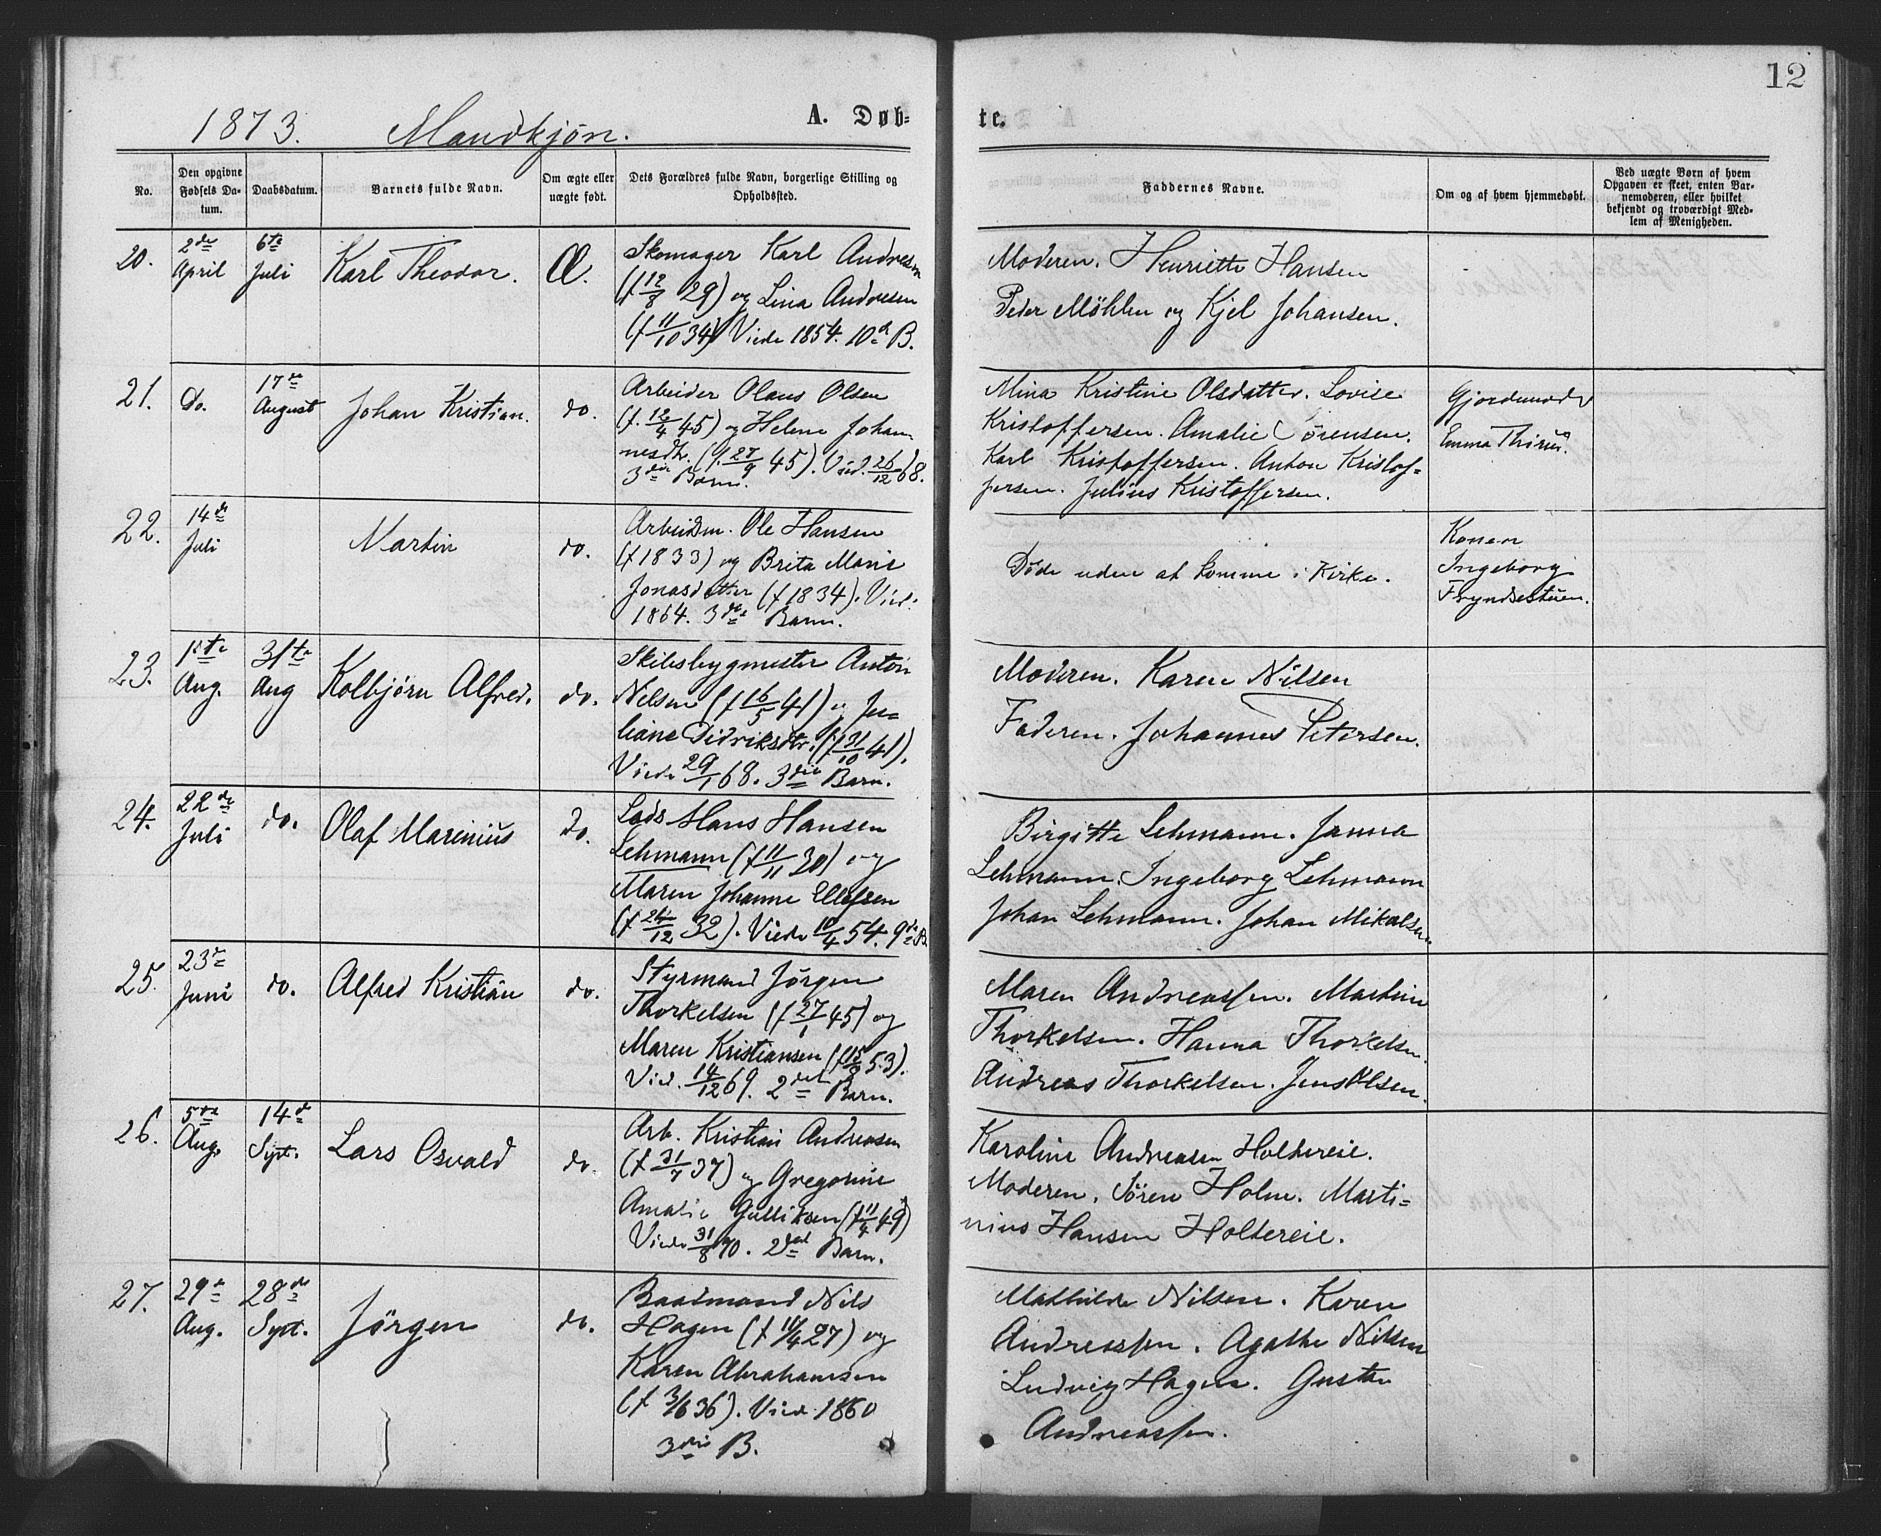 12
1873. Mandkjøn. A. Døb- te.
No.
Den opgivne Fødsels Da- tum.
Daabsdatum.
Barnets fulde Navn.
Om ægte eller uægte født.
Dets Forældres fulde Navn, borgerlige Stilling og Opholdssted.
Faddernes Navne.
Om og af hvem hjemmedøbt.
Ved uægte Børn af hvem Opgaven er skeet, enten Bar- nemoderen, eller hvilket bekjendt og troværdigt Med- lem af Menigheden.
20.
2de April
6te Juli
Karl Theodor.
Æ.
Skomager Karl Andresen
(f 12/8 29) og Lina Andresen
(f 11/10 34) Viede 1854. 10d B.
Moderen. Henriette Hansen
Peder Møhlen og Kjel Johansen.
21.
Do.
17de August
Johan Kristian.
do.
Arbeider Olaus Olsen
(f. 12/4 45) og Helene Johan-
nesdtr. (f. 27/9 45). Vied. 26/12 68.
3die Barn.
Mina Kristine Olsdatter. Lovise
Kristoffersen. Amalie Sørensen.
Karl Kristoffersen. Anton Kristof-
fersen. Julius Kristoffersen.
Gjordemoder
Emma
22.
14de Juli
Martin
do.
Arbeidsm. Ole Hansen
(f 1833) og Brita Marie
Jonasdatter (f 1834). Vied:
1864. 3die Barn.
Døde uden at komme i Kirke.
Konen
Ingeborg
Fryndsestuen.
23.
1ste Aug.
31te Aug
Kolbjørn Alfred.
do.
Skibsbygmester Anton
Nelsen (f 16/5 41) og Ju-
liane Didriksdtr. (f 31/10 41).
Viede 29/1 68. 3die Barn.
Moderen. Karen Nilsen
Faderen. Johannes Petersen.
24.
22de Juli
do.
Olaf Marinius
do.
Lods Hans Hansen
Lehmann (f 11/11 30) og
Maren Johanne Ellefsen
(f 26/12 32). Viede 10/4 54. 9de B
Birgitte Lehmann. Janna
Lehmann. Ingeborg Lehmann
Johan Lehmann. Johan Mikalsen
25.
23de Juni
do.
Alfred Kristian
do.
Styrmand Jørgen
Thorkelsen (f 27/1 45) og
Maren Kristiansen (f 53).
Vied. 14/12 69. 2det Barn.
Maren Andreassen. Martin
Thorkelsen. Hanna Thorkelsen.
Andreas Thorkelsen. Jens Olsen.
26.
5te Aug.
14de Sept.
Lars Osvald
do.
Arb. Kristian Andreasen
(f 31/7 37) og Gregorine
Amalie Gulliksen (f 11/4 49)
Viede 31/8 70. 2det Barn.
Karoline Andreasen Holtereie.
Moderen. Sören Holm. Marti-
nius Hansen Holtereie.
27.
29de Aug.
28de Sept.
Jørgen
do.
Baadmand Nils
Hagen (f 10/4 27) og
Karen Abrahamsen
(f 3/6 36). Vied 1860
3die B.
Mathilde Nilsen. Karen
Andreassen. Agathe Nilsen
Ludvig Hagen. Gustav
Andreassen.